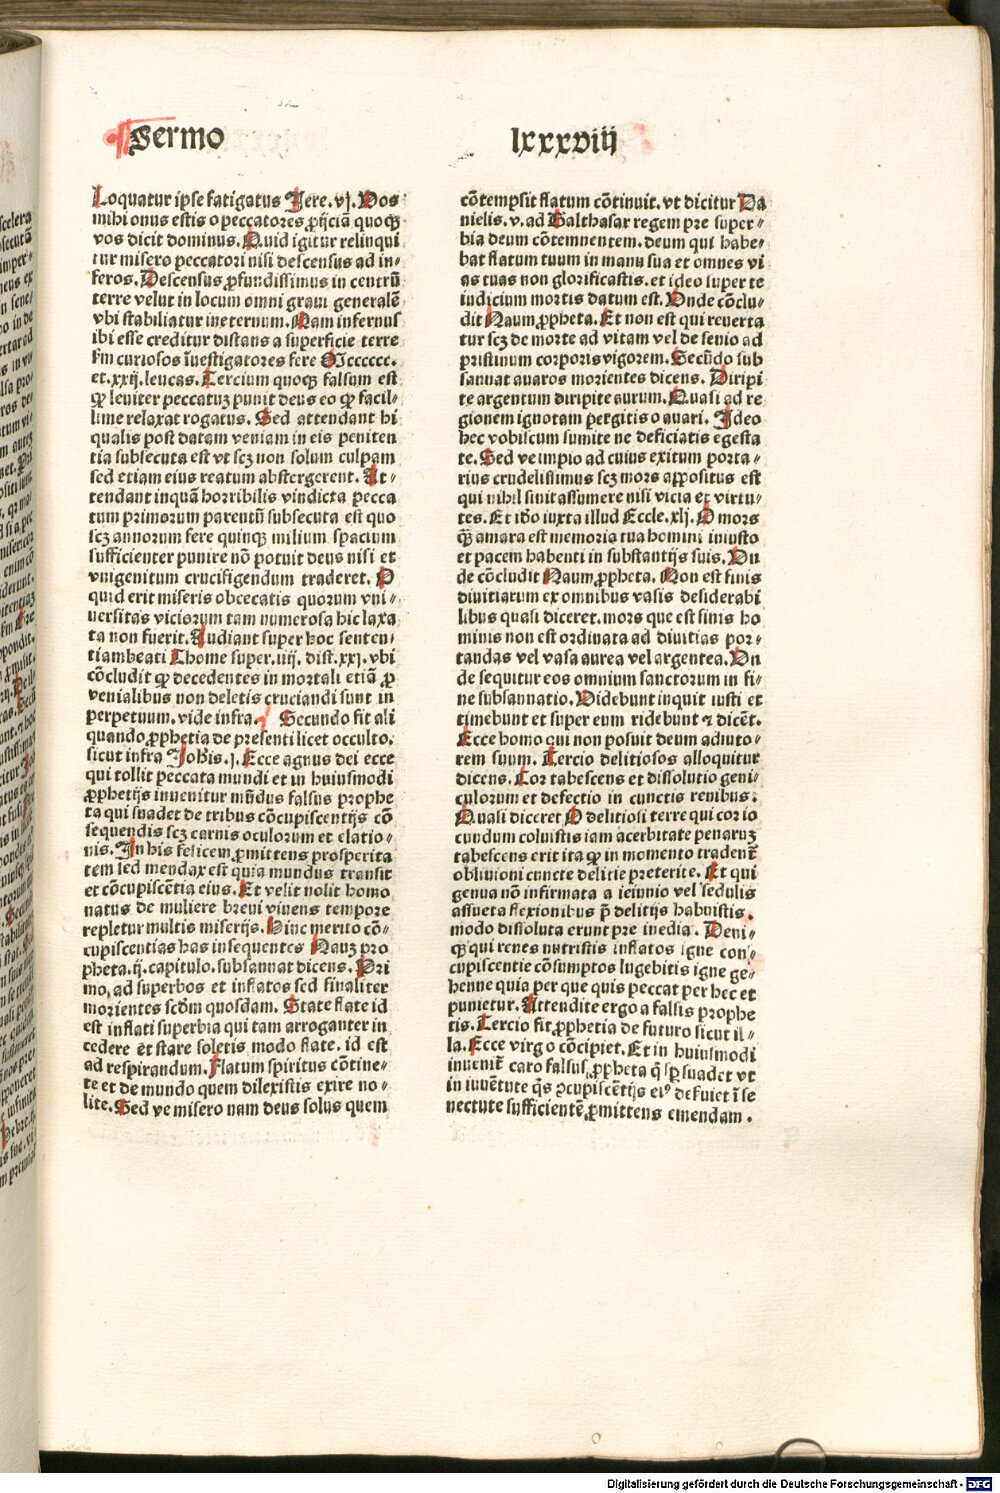 Sermo
lxxxviij
Loquatur ipse fatigatus Jere. vj. Vos
mihi onus estis o peccatores ꝓijciā quoqꝫ
vos dicit dominus. Quid igitur relinqui
tur misero peccatori nisi descensus ad in⸗
feros. Descensus ꝓfundissimus in centrū
terre velut in locum omni graui generalē
vbi stabiliatur ineternum. Nam infernus
ibi esse creditur distans a superficie terre
fm curiosos īuestigatores fere Mcccccc.
et .xxij. leucas. Tercium quoqꝫ falsum est
qꝫ leuiter peccatuꝫ punit deus eo qꝫ facil⸗
lime relaxat rogatus. Sed attendant hi
qualis post datam veniam in eis peniten
tia subsecuta est vt scꝫ non solum culpam
sed etiam eius reatum abstergerent. At⸗
tendant inquā horribilis vindicta pecca
tum primorum parentū subsecuta est quo
scꝫ annorum fere quinqꝫ milium spacium
sufficienter punire nō potuit deus nisi et
vnigenitum crucifigendum traderet. O
quid erit miseris obcecatis quorum vni⸗
uersitas viciorum tam numerosa hic laxa
ta non fuerit. Audiant super hoc senten⸗
tiam beati Thome super .iiij. dist. xxj. vbi
cōcludit qꝫ decedentes in mortali etiā ꝓ
venialibus non deletis cruciandi sunt in
perpetuum. vide infra. Secundo fit ali
quando ꝓphetia de presenti licet occulto.
sicut infra Johīs. j. Ecce agnus dei ecce
qui tollit peccata mundi et in huiusmodi
ꝓphetijs inuenitur mūdus falsus prophe
ta qui suadet de tribus cōcupiscentijs cō
sequendis scꝫ carnis oculorum et elatio⸗
nis. In his felicem ꝓmittens prosperita
tem sed mendax est quia mundus transit
et cōcupiscētia eius. Et velit nolit homo
natus de muliere breui viuens tempore
repletur multis miserijs. Hinc merito cō⸗
cupiscentias has insequentes Nauꝫ pro
pheta .ij. capitulo. subsannat dicens. Pri
mo, ad superbos et inflatos sed finaliter
morientes scdm quosdam. State flate id
est inflati superbia qui tam arroganter in
cedere et stare soletis modo flate. id est
ad respirandum. Flatum spiritus cōtine⸗
te et de mundo quem dilexistis exire no⸗
lite. Sed ve misero nam deus solus quem
cōtempsit flatum cōtinuit. vt dicitur Da
nielis. v. ad Balthasar regem pre super⸗
bia deum cōtemnentem. deum qui habe⸗
bat flatum tuum in manu sua et omnes vi
as tuas non glorificastis. et ideo super te
iudicium mortis datum est. Unde cōclu⸗
dit Naum ꝓpheta. Et non est qui reuerta
tur scꝫ de morte ad vitam vel de senio ad
pristinum corporis vigorem. Secūdo sub
sannat auaros morientes dicens. Diripi
te argentum diripite aurum. Quasi ad re
gionem ignotam pergitis o auari. Ideo
hec vobiscum sumite ne deficiatis egesta
te. Sed ve impio ad cuius exitum porta⸗
rius crudelissimus scꝫ mors appositus est
qui nihil sinit assumere nisi vicia et virtu⸗
tes. Et iđo iuxta illud Eccle. xlj. O mors
qꝫ amara est memoria tua homini iniusto
et pacem habenti in substantijs suis. Un
de cōcludit Naum ꝓpheta. Non est finis
diuitiarum ex omnibus vasis desiderabi
libus quasi diceret. mors que est finis ho
minis non est ordinata ad diuitias por⸗
tandas vel vasa aurea vel argentea. Un
de sequitur eos omnium sanctorum in fi⸗
ne subsannatio. Videbunt inquit iusti et
timebunt et super eum ridebunt ⁊ dicēt.
Ecce homo qui non posuit deum adiuto⸗
rem suum. Tercio delitiosos alloquitur
dicens. Cor tabescens et dissolutio geni⸗
culorum et defectio in cunctis renibus.
Quasi diceret O delitiosi terre qui cor io
cundum coluistis iam acerbitate penaruꝫ
tabescens erit ita qꝫ in momento tradent̄
obliuioni cuncte delitie preterite. Et qui
genua nō infirmata a ieiunio vel sedulis
assueta flexionibus p̄ delitijs habuistis.
modo dissoluta erunt pre inedia. Deni⸗
qꝫ qui renes nutristis inflatos igne con⸗
cupiscentie cōsumptos lugebitis igne ge⸗
henne quia per que quis peccat per hec et
punietur. Attendite ergo a falsis prophe
tis. Tercio fit ꝓphetia de futuro sicut il⸗
la. Ecce virgo cōcipiet. Et in huiusmodi
inuenit̄ caro falsus ꝓpheta q̄ sꝑ suadet vt
in iuuētute q̄s ꝯcupiscētijs eiꝰ defuiet ī se
nectute sufficientē ꝓmittens emendam.
Digitalisierung gefördert durch die Deutsche Forschungsgemeinschaft - DFG